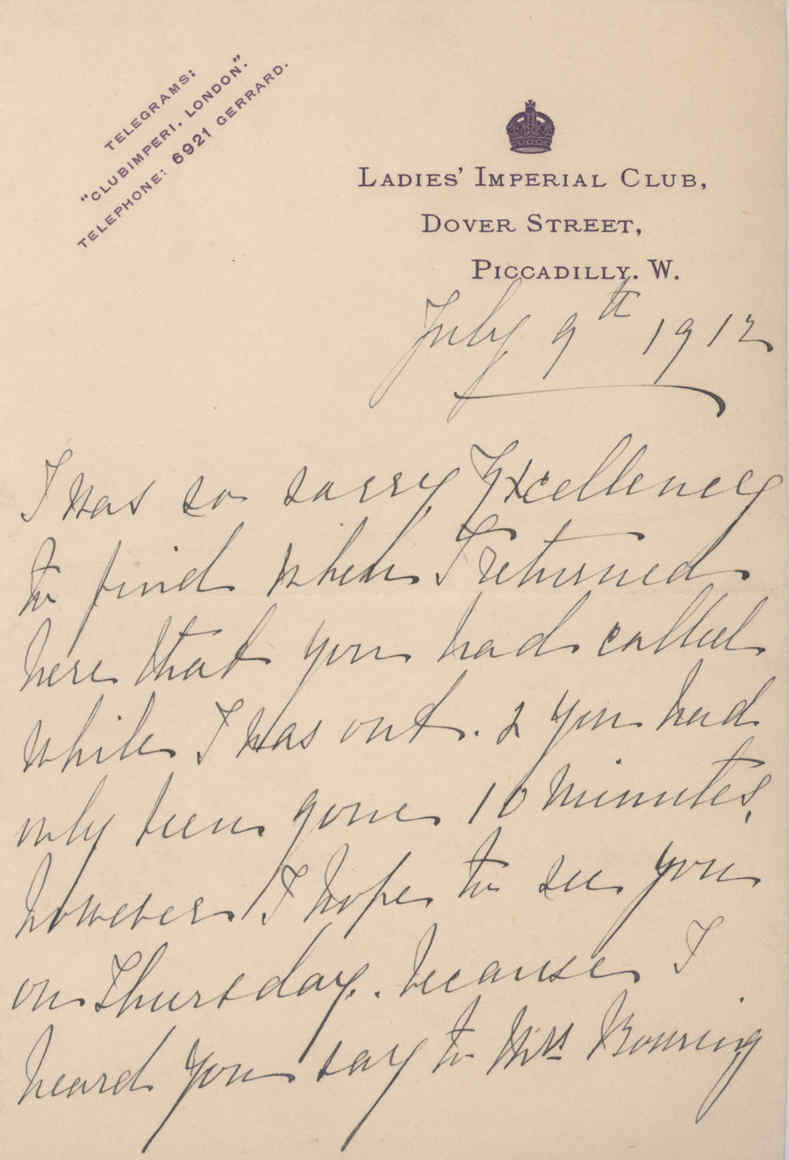 TELEGRAMS:
"CLUBIMPERI, LONDON".
TELEPHONE: 6921 GERRARD.
LADIES' IMPERIAL CLUB,
DOVER STREET,
PICCADILLY. W.
July 9th 1912
I was so sorry Excellency
to find when I returned
here that you had called
while I was out. & you had
only been gone 10 minutes,
however I hope to see you
on Thursday. because I
heard you say to Mrs Bowring